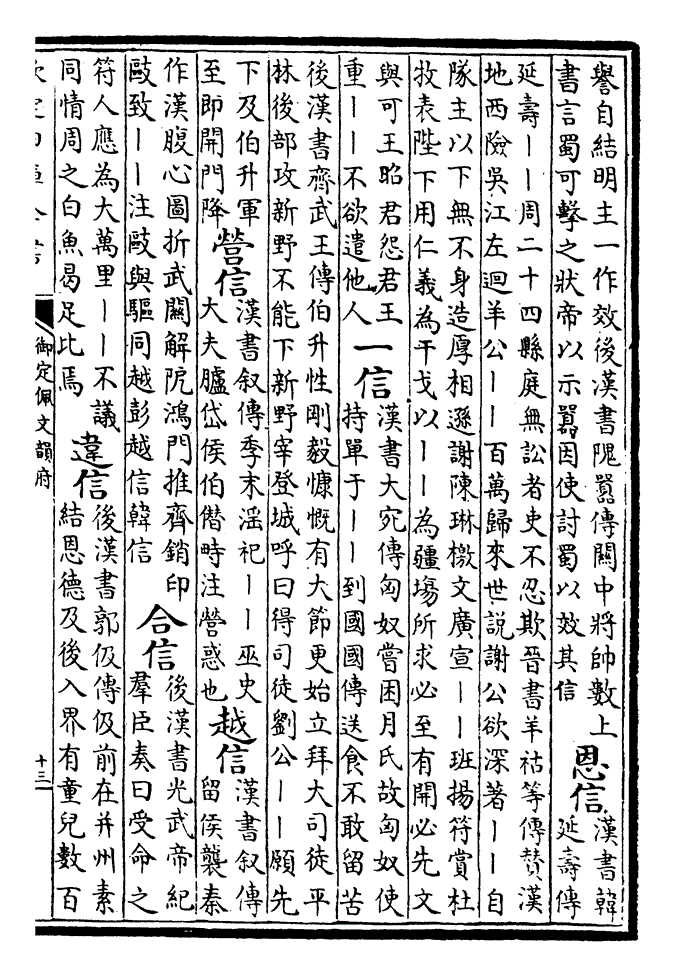 譽自結明主一作效後漢書隗囂傳關中將帥數上
書言蜀可擊之狀帝以示囂因使討蜀以效其信
恩信
漢書韓
延壽傳
延壽丨丨周二十四縣庭無訟者史不忍欺晉書羊祜等傳贊漢
地西險吳江左迴羊公丨丨百萬歸來世說謝公欲深著丨丨自
隊主以下無不身造厚相遜謝陳琳檄文廣宣丨丨班揚符賞杜
牧表陛下用仁義為干戈以丨丨為疆場所求必至有開必先文
與可王昭君怨君王
重丨丨不欲遣他人
一信
漢書大宛傳匈奴嘗困月氏故匈奴使
持單于丨丨到國國傳送食不敢留苦
後漢書齊武王傳伯升性剛毅慷慨有大節更始立拜大司徒平
林後部攻新野不能下新野宰登城呼曰得司徒劉公丨丨願先
下及伯升軍
至即開門降
營信
漢書叙傳季末滛祀丨丨巫史
大夫臚岱侯伯僭時注營惑也
越信
漢書叙傳
留侯襲秦
作漢腹心圖折武關解阨鴻門推齊銷印
敺致丨丨注敺與驅同越彭越信韓信
合信
後漢書光武帝紀
羣臣奏曰受命之
符人應為大萬里丨丨不議
同情周之白魚曷足比焉
違信
後漢書郭伋傳伋前在并州素
結恩德及後入界有童兒數百
欽定四庫全書
御定佩文韻府
十三